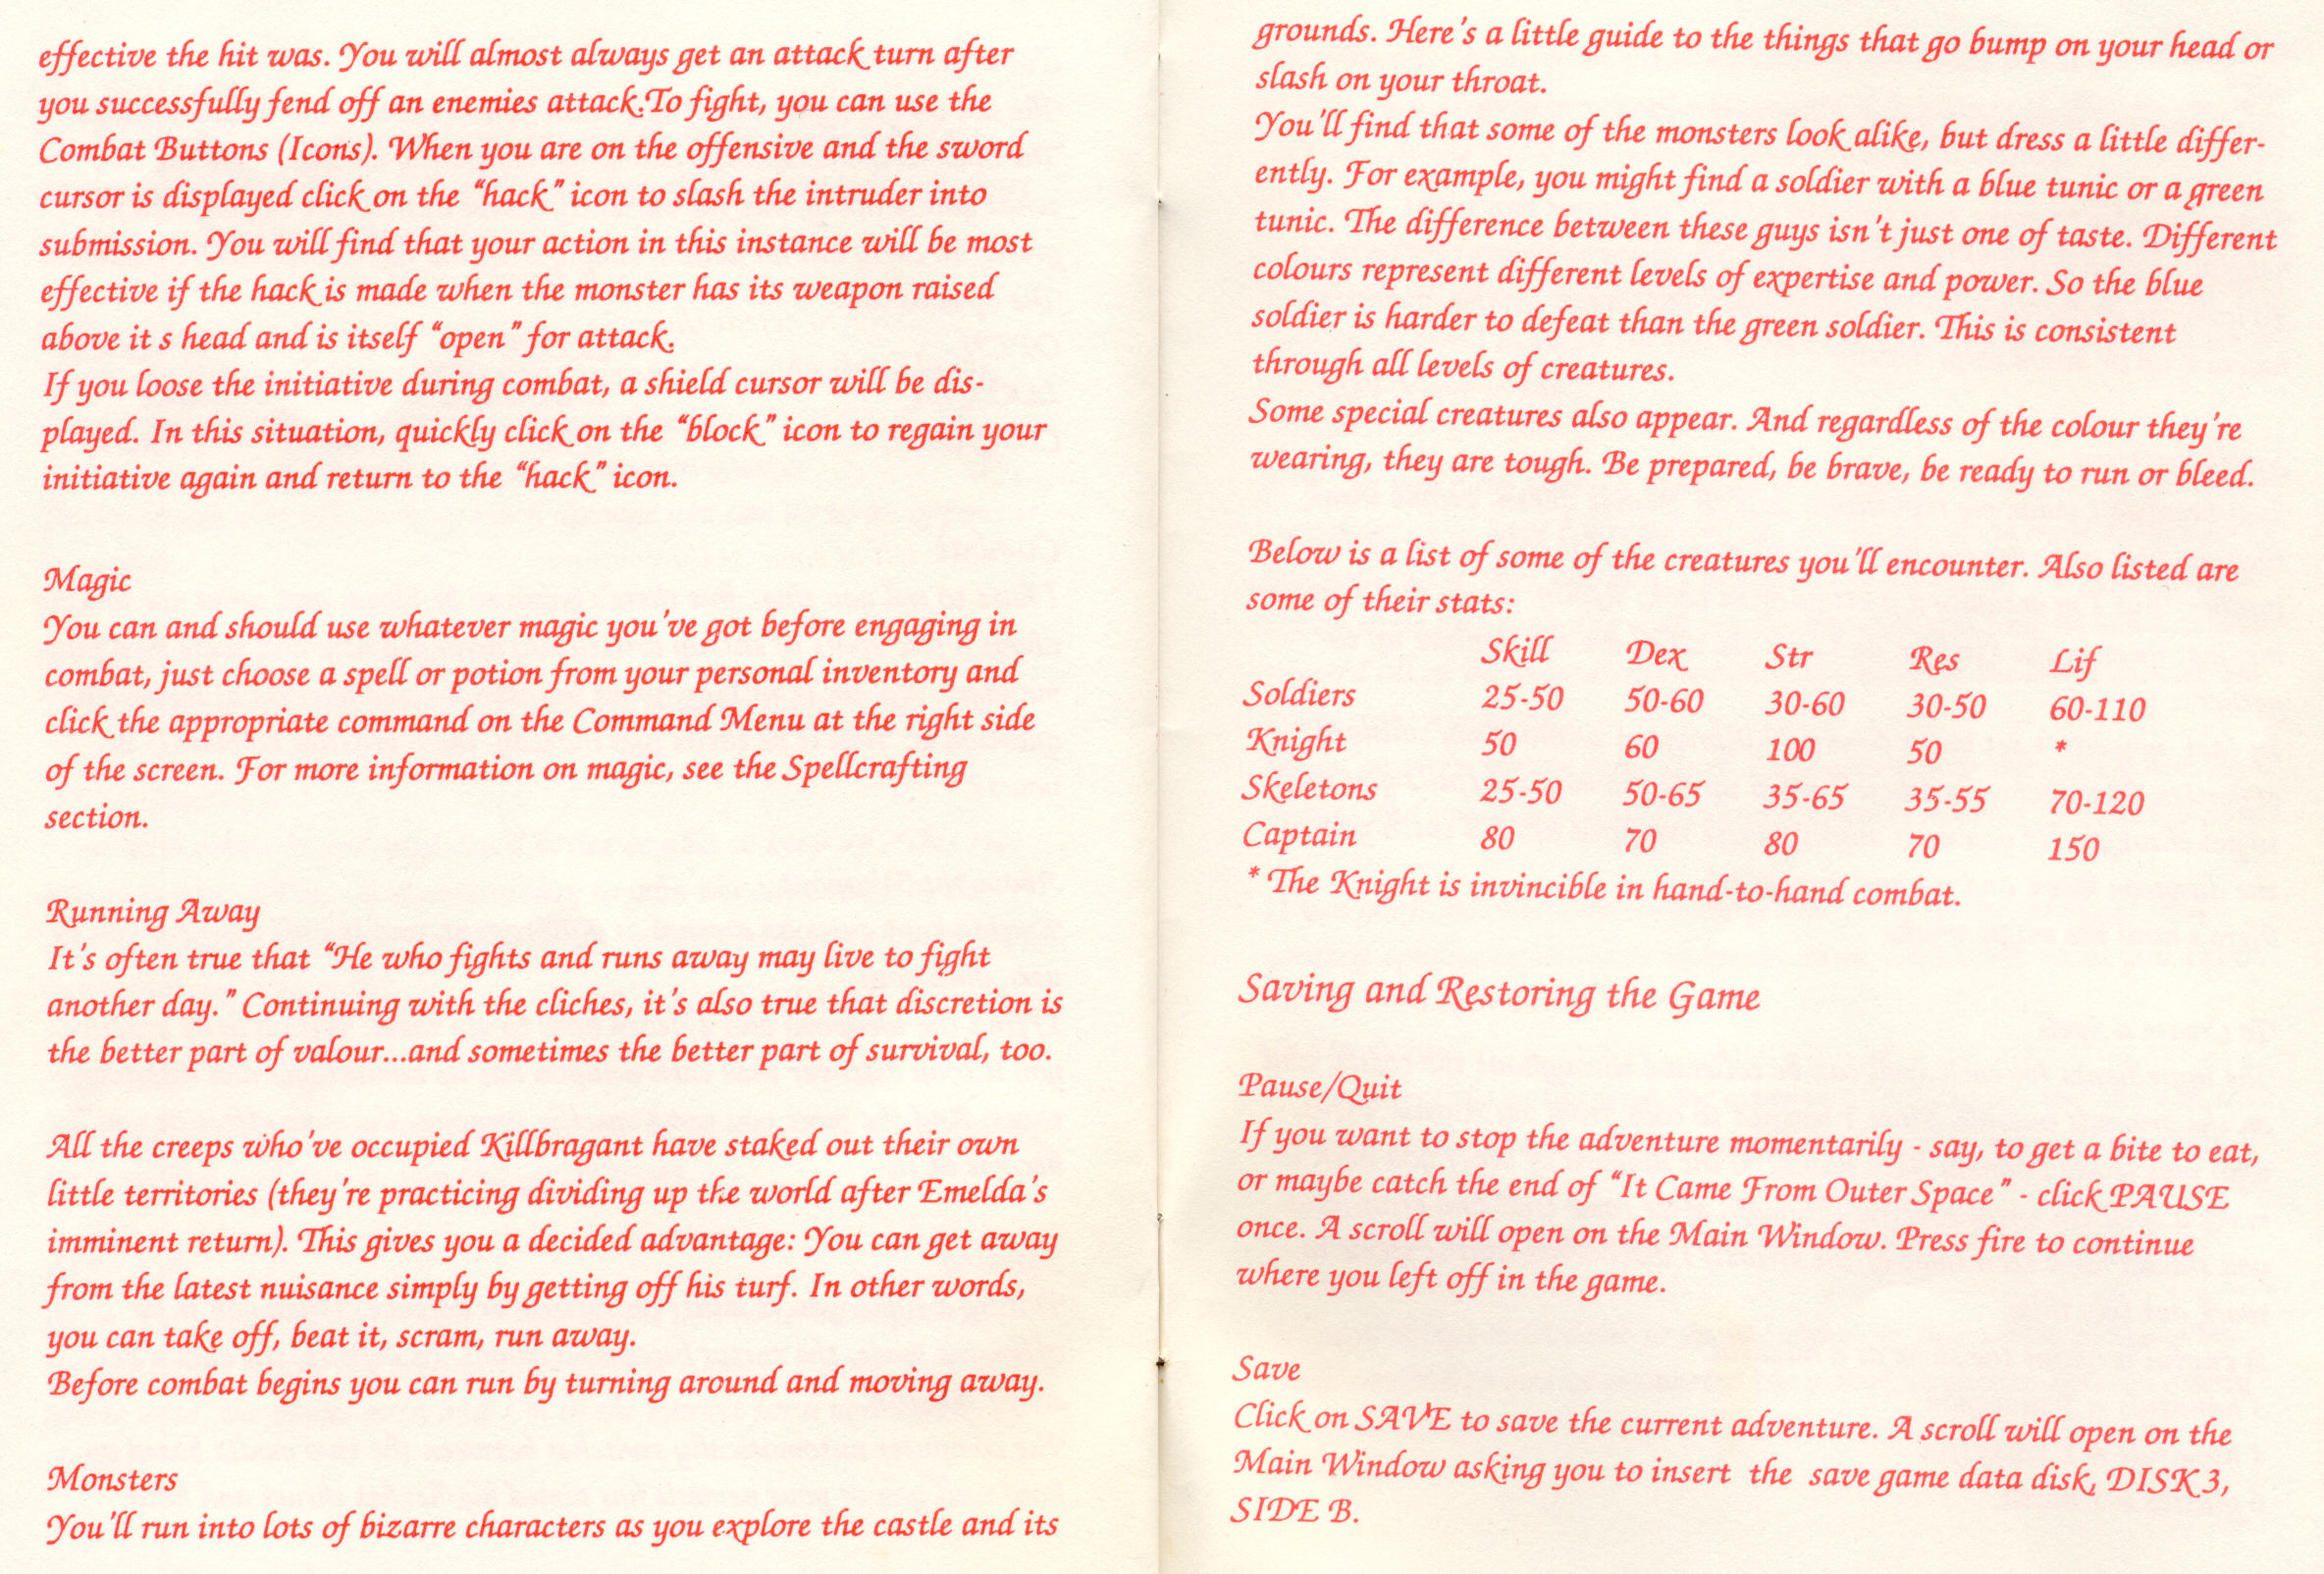 effective the hit was. You will almost always get an attack turn after
you successfully fend off an enemies attack.To fight, you can use the
Combat Buttons (Icons). When you are on the offensive and the sword
cursor is displayed click on the “hack” icon to slash the intruder into
submission. You will find that your action in this instance will be most
effective if the hack is made when the monster has its weapon raised
above it s head and is itself “open” for attack.
If you loose the initiative during combat, a shield cursor will be dis-
played. In this situation, quickly click on the “block” icon to regain your
initiative again and return to the “hack” icon.
Magic
You can and should use whatever magic you've got before engaging in
combat, just choose a spell or potion from your personal inventory and
click the appropriate command on the Command Menu at the right side
of the screen. For more information on magic, see the Spellcrafting
section.
Running Away
It's often true that “He who fights and runs away may live to fight
another day.” Continuing with the cliches, it's also true that discretion is
the better part of valour...and sometimes the better part of survival, too.
All the creeps who've occupied Killbragant have staked out their own
little territories (they're practicing dividing up the world after Emelda's
imminent return). This gives you a decided advantage: You can get away
from the latest nuisance simply by getting off his turf. In other words,
you can take off, beat it, scram, run away.
Before combat begins you can run by turning around and moving away.
Monsters
You'll run into lots of bizarre characters as you explore the castle and its
grounds. Here's a little guide to the things that go bump on your head or
slash on your throat.
You'll find that some of the monsters look alike, but dress a little differ-
ently. For example, you might find a soldier with a blue tunic or a green
tunic. The difference between these guys isn't just one of taste. Different
colours represent different levels of expertise and power. So the blue
soldier is harder to defeat than the green soldier. This is consistent
through all levels of creatures.
Some special creatures also appear. And regardless of the colour they're
wearing, they are tough. Be prepared, be brave, be ready to run or bleed.
Below is a list of some of the creatures you'll encounter. Also listed are
some of their stats:
Skill Dex Str Res Lif
Soldiers 25-50 50-60 30-60 30-50 60-110
Knight 50 60 100 50 *
Skeletons 25-50 50-65 35-65 35-55 70-120
Captain 80 70 80 70 150
* The Knight is invincible in hand-to-hand combat.
Saving and Restoring the Game
Pause/Quit
If you want to stop the adventure momentarily - say, to get a bite to eat,
or maybe catch the end of “It Came From Outer Space” - click PAUSE
once. A scroll will open on the Main Window. Press fire to continue
where you left off in the game.
Save
Click on SAVE to save the current adventure. A scroll will open on the
Main Window asking you to insert the save game data disk, DISK 3,
SIDE B.